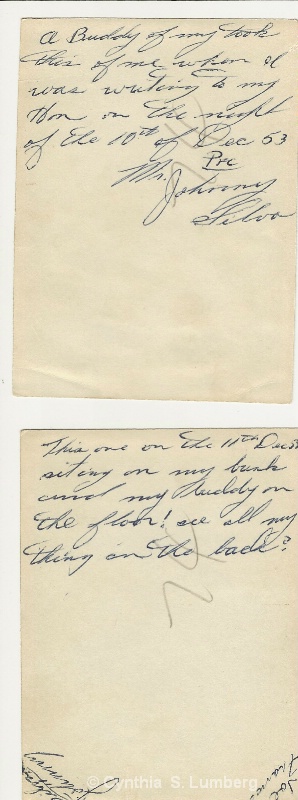 A Buddy of my took
this of me when I
was writing to my
Hon on the night
of the 10th of Dec 53
Pvc
Mr. Johnny
Silva
This one on the 11th Dec 53
siting on my bunk
and my buddy on
the floor! see all my
thing in the back?
© Cynthia S. Lumberg.